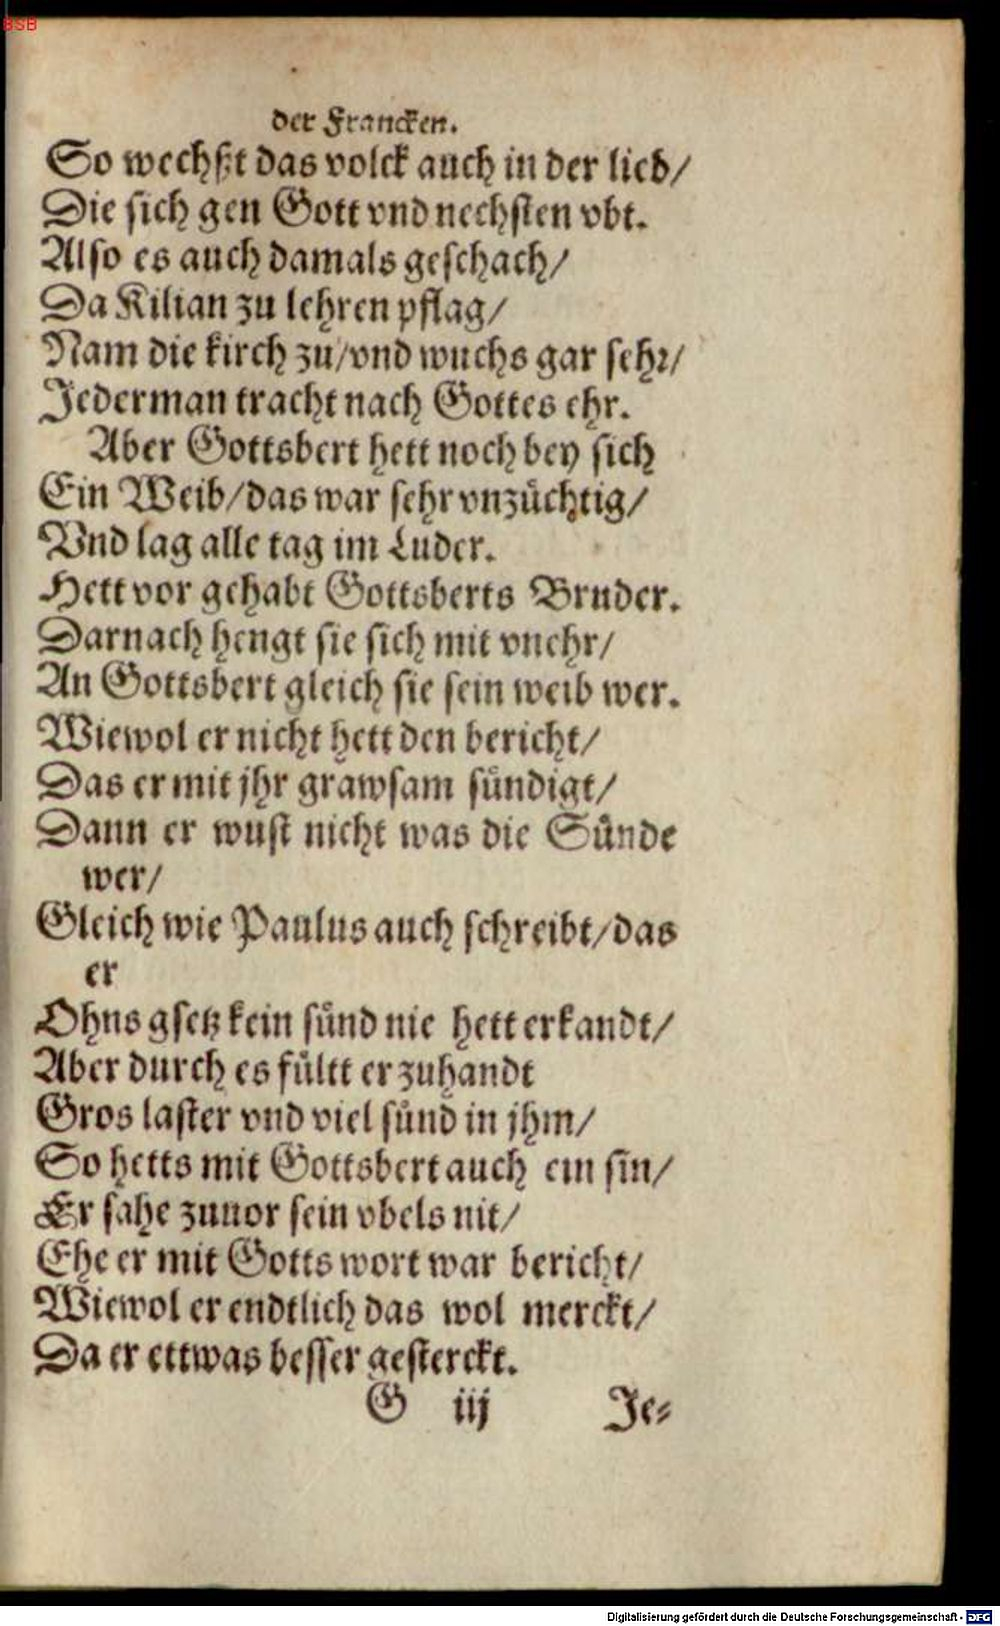 BSB
der Francken.
So wechßt das volck auch in der lieb/
Die sich gen Gott vnd nechsten vbt.
Also es auch damals geschach/
Da Kilian zu lehren pflag/
Nam die kirch zu/vnd wuchs gar sehr/
Jederman tracht nach Gottes ehr.
Aber Gottsbert hett noch bey sich
Ein Weib/das war sehr vnzüchtig/
Vnd lag alle tag im Luder.
Hett vor gehabt Gottsberts Bruder.
Darnach hengt sie sich mit vnehr/
An Gottsbert gleich sie sein weib wer.
Wiewol er nicht hett den bericht/
Das er mit jhr grawsam sündigt/
Dann er wust nicht was die Sünde
wer/
Gleich wie Paulus auch schreibt/das
er
Ohns gsetz kein sünd nie hett erkandt/
Aber durch es fültt er zuhandt
Gros laster vnd viel sünd in jhm/
So hetts mit Gottsbert auch ein sin/
Er sahe zuuor sein vbels nit/
Ehe er mit Gotts wort war bericht/
Wiewol er endtlich das wol merckt/
Da er ettwas besser gesterckt.
G iij Je⸗
Digitalisierung gefördert durch die Deutsche Forschungsgemeinschaft - DFG